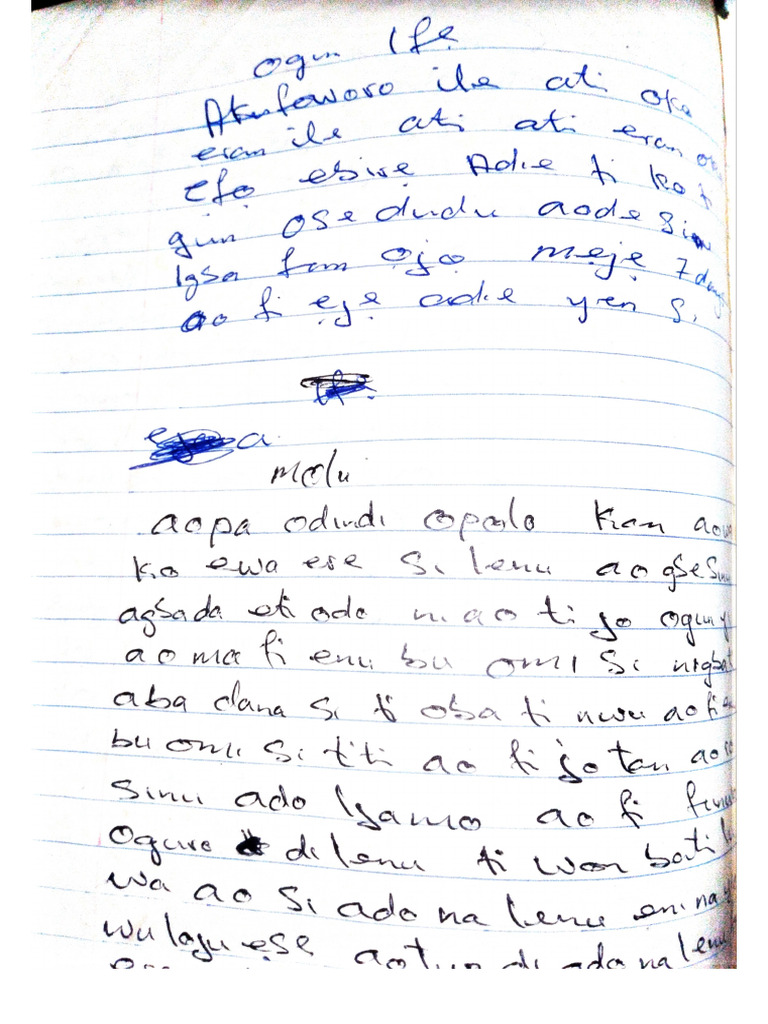 ogun Ife
Akufoworo ile ati oko
eran ile ati ati eran oko
efo ebire Adie ti ko ti
gun ose dudu aode sinu
Igba fun ojo meje 7 days
ao fi eje adie yen si
a
Molu
aopa odindi opolo kan aowa
ko ewa ese si lenu ao gbe sinu
agbada eti odo ni ao ti jo ogun
ao ma fi enu bu omi si nigbat
aba dana si ti oba ti nwu ao fi
bu omi si titi ao fi jo tan ao
sinu ado Iyamo ao fi funfun
Ogure di lenu ti won bati
wa ao si ado na lenu enina
wu lagu ese aotun di ado na lenu